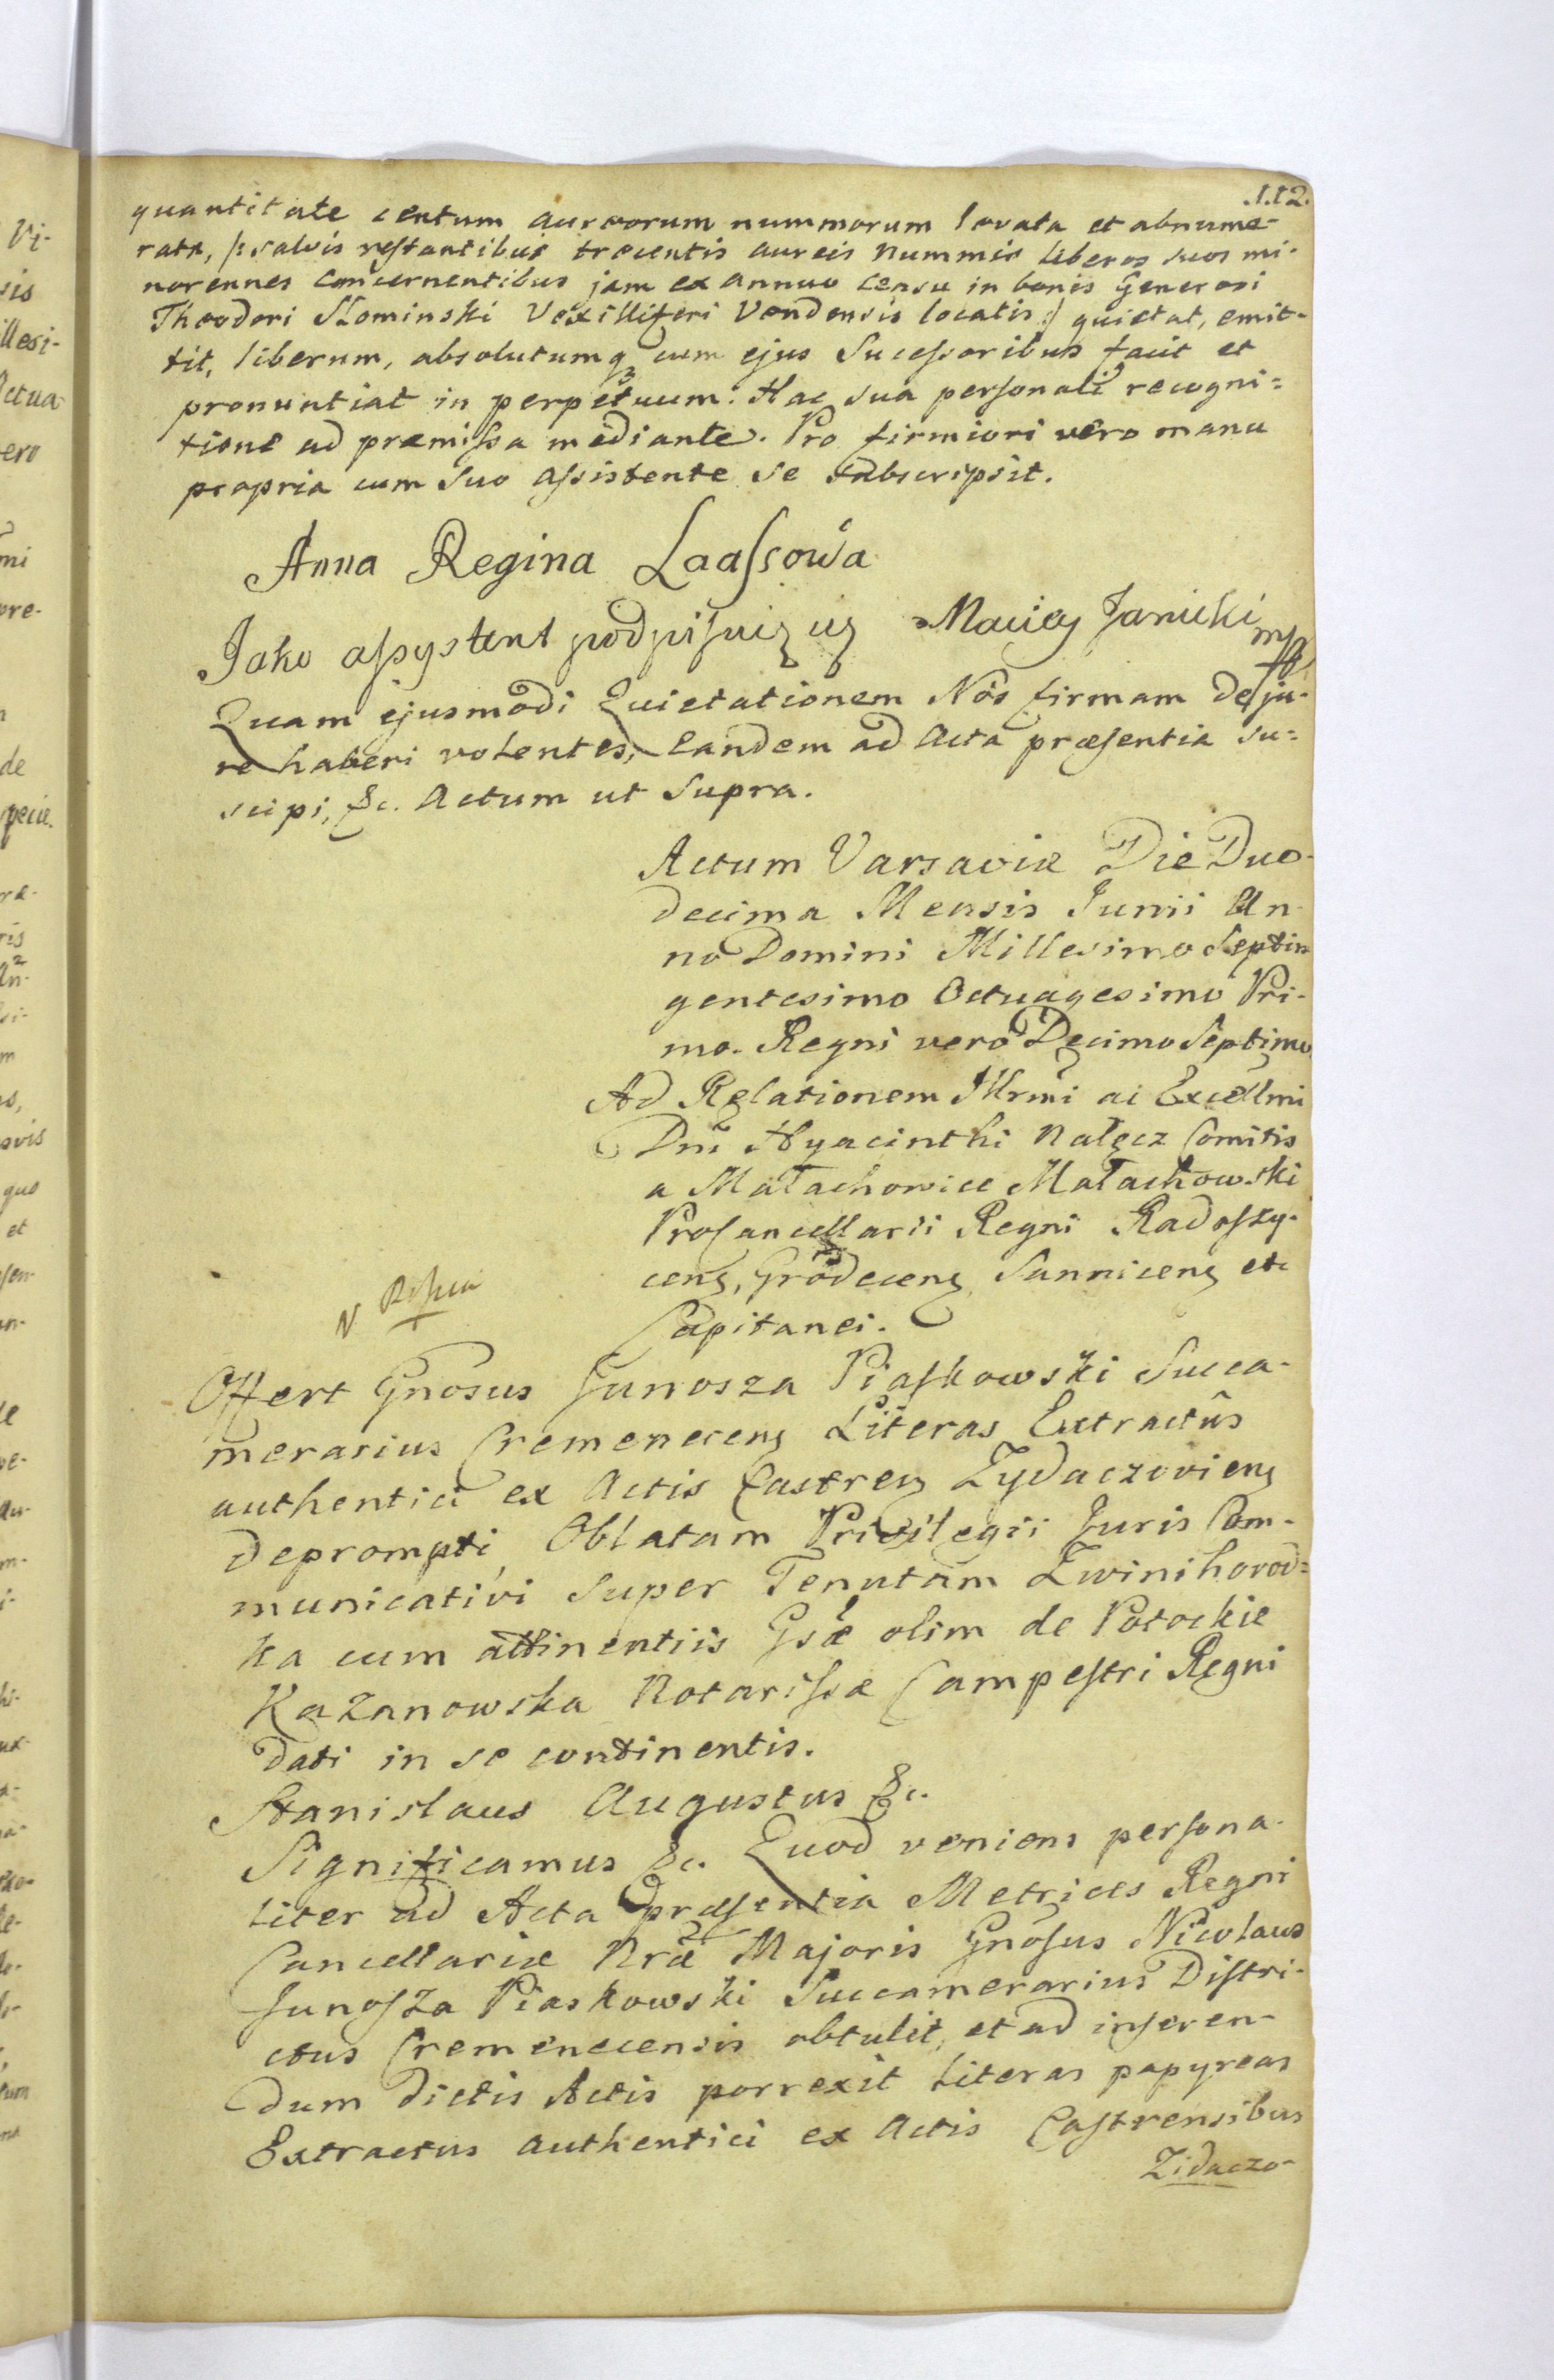 112.
quantitate centum aureorum nummorum levata et abnume-
rata, /: salvis restantibus trecentis aureis nummis liberos suos mi-
norennes concernentibus jam ex annuo censu in bonis Generosi
Theodori Słominski Vexilliferi Vendensis locatis :/ quietat, emit-
tit, liberum, absolutumq3 cum ejus Sucessoribus facit et
pronuntiat in perpetuum. Hac sua personali recogni=
tione ad præmissa mediante. Pro firmiori vero manu
propria cum suo assistente se subscripsit.
Anna Regina Laassowa
Jako assystent podpisuię się Maciey Janicki mp
Quam ejusmodi Quietationem Nos firmam de ju-
re haberi volentes, eandem ad Acta præsentia su=
scipi, &c. Actum ut Supra.
Actum Varsaviæ Die Duo-
decima Mensis Junii An-
no Domini Millesimo Septin
gentesimo Octuagesimo Pri-
mo. Regni vero Decimo Septimo
Ad Relationem Illrmi ac Excellmi
Dni Hyacinthi Nałęcz Comitis
a Małachowice Małachowski
Procancellarii Regni Radoszy-
ceng, Grodeceng Sanniceng etc
Capitanei.
Offert Gnosus Junosza Piaskowski Succa-
merarius Cremeneceng Literas Extractûs
authentici ex Actis Castreng Zydaczovieng
deprompti Oblatam Privilegii Juris Com-
municativi super Tenutam Zwinihorod=
ka cum attinentiis Gsæ olim de Potockie
Kazanowska Notarissæ Campestri Regni
dati in se continentis.
Stanislaus Augustus &c.
Significamus &c. Quod veniens persona-
liter ad Acta præsentia Metrices Regni
Cancellariæ Nræ Majoris Gnosus Nicolaus
Junosza Piaskowski Succamerarius Distri-
ctus Cremenecensis obtulit, et ad inseren-
dum dictis Actis porrexit Literas papyreas
Extractus authentici ex Actis Castrensibus
Zidaczo-